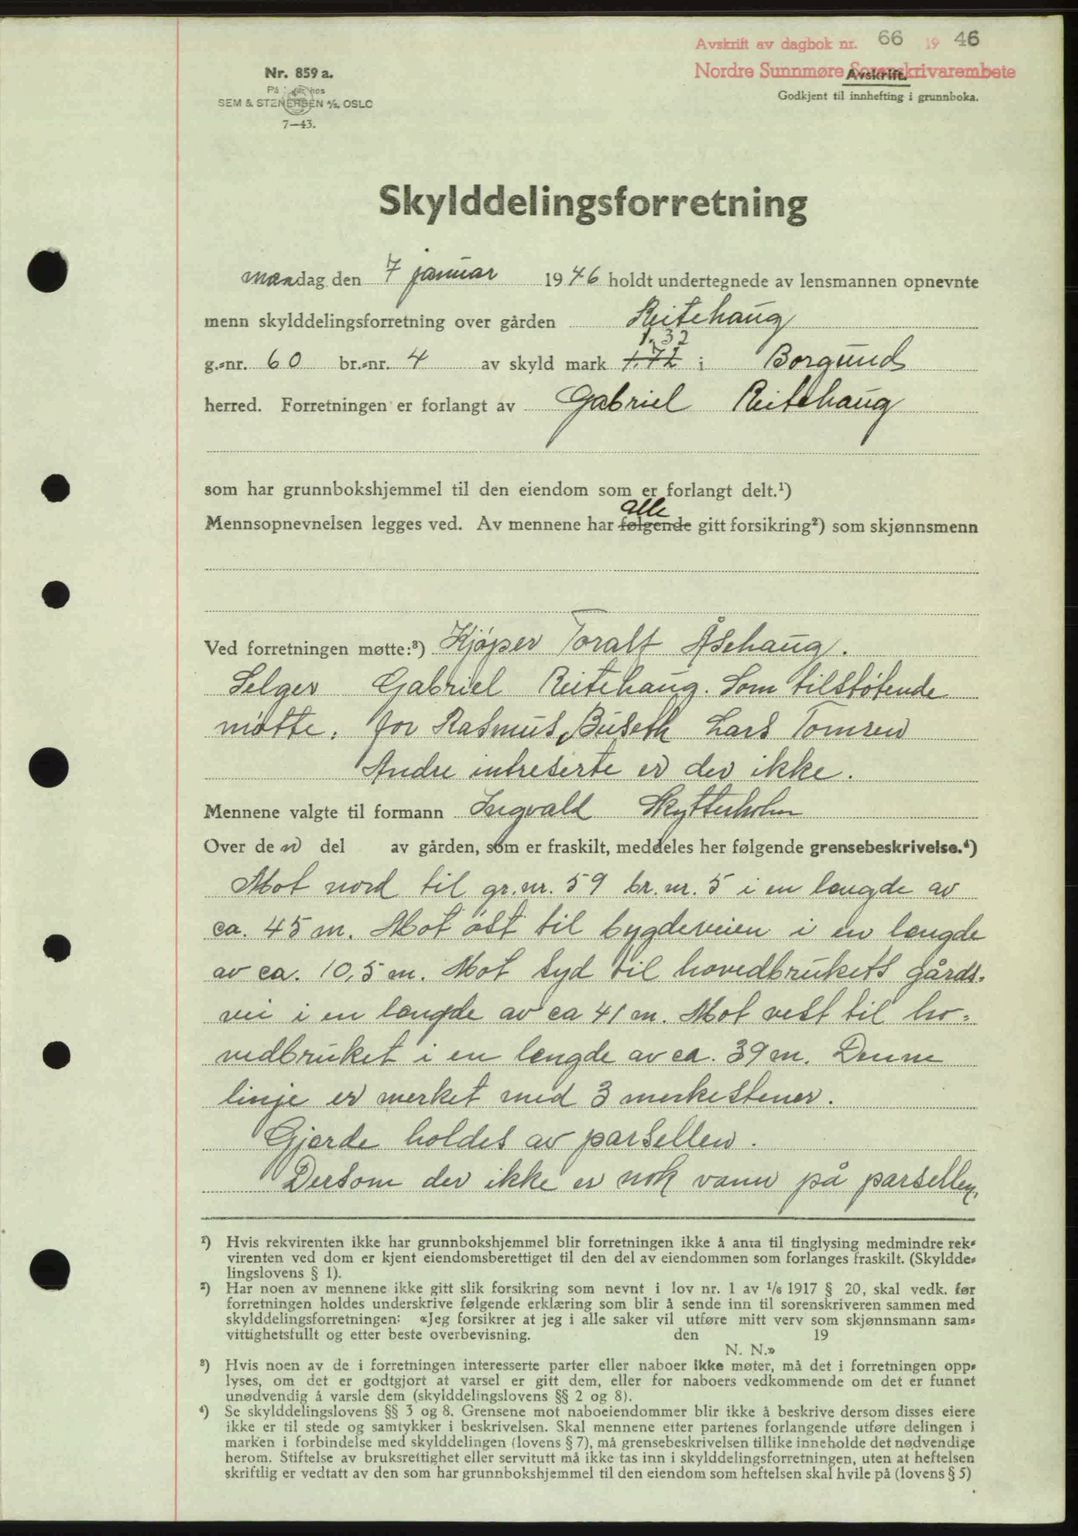 Avskrift av dagbok nr. 66 1946
Nordre Sunnmøre Sorenskrivarembete
Avskrift.
Godkjent til innhefting i grunnboka.
Nr. 859 a.
SEM & STENERSEN A/S, OSLO
7—43.
Skylddelingsforretning
mandag den 7 januar 1946 holdt undertegnede av lensmannen opnevnte
menn skylddelingsforretning over gården Reitehaug
1.32
g.-nr. 60 br.-nr. 4 av skyld mark 1.72 i Borgund
herred. Forretningen er forlangt av Gabriel Reitehaug
som har grunnbokshjemmel til den eiendom som er forlangt delt.¹)
alle
Mennsopnevnelsen legges ved. Av mennene har følgende gitt forsikring²) som skjønnsmenn
Ved forretningen møtte:³) Kjøper Toralf Åsehaug.
Selger Gabriel Reitehaug. Som tilstøtende
møtte, for Rasmus Buseth Lars Tomsen
Andre intreserte er der ikke.
Mennene valgte til formann Ingvald Skytterholm
Over den del av gården, som er fraskilt, meddeles her følgende grensebeskrivelse.⁴)
Mot nord til gr. nr. 59 br. nr. 5 i en lengde av
ca. 45 m. Mot øst til bygdeveien i en lengde
av ca. 10,5 m. Mot syd til hovedbrukets gårds-
vei i en lengde av ca 41 m. Mot vest til ho-
vedbruket i en lengde av ca. 39 m. Denne
linje er merket med 3 merkestener.
Gjerde holdes av parsellen.
Dersom der ikke er nok vann på parsellen,
¹) Hvis rekvirenten ikke har grunnbokshjemmel blir forretningen ikke å anta til tinglysing medmindre rek-
virenten ved dom er kjent eiendomsberettiget til den del av eiendommen som forlanges fraskilt. (Skyldde-
lingslovens § 1).
²) Har noen av mennene ikke gitt slik forsikring som nevnt i lov nr. 1 av ¹/₆ 1917 § 20, skal vedk. før
forretningen holdes underskrive følgende erklæring som blir å sende inn til sorenskriveren sammen med
skylddelingsforretningen: «Jeg forsikrer at jeg i alle saker vil utføre mitt verv som skjønnsmann sam-
vittighetsfullt og etter beste overbevisning. den 19
N. N.»
³) Hvis noen av de i forretningen interesserte parter eller naboer ikke møter, må det i forretningen opp-
lyses, om det er godtgjort at varsel er gitt dem, eller for naboers vedkommende om det er funnet
unødvendig å varsle dem (skylddelingslovens §§ 2 og 8).
⁴) Se skylddelingslovens §§ 3 og 8. Grensene mot naboeiendommer blir ikke å beskrive dersom disses eiere
ikke er til stede og samtykker i beskrivelsen. Skal mennene etter partenes forlangende utføre delingen i
marken i forbindelse med skylddelingen (lovens § 7), må grensebeskrivelsen tillike inneholde det nødvendige
herom. Stiftelse av bruksrettighet eller servitutt må ikke tas inn i skylddelingsforretningen, uten at heftelsen
skriftlig er vedtatt av den som har grunnbokshjemmel til den eiendom som heftelsen skal hvile på (lovens § 5)